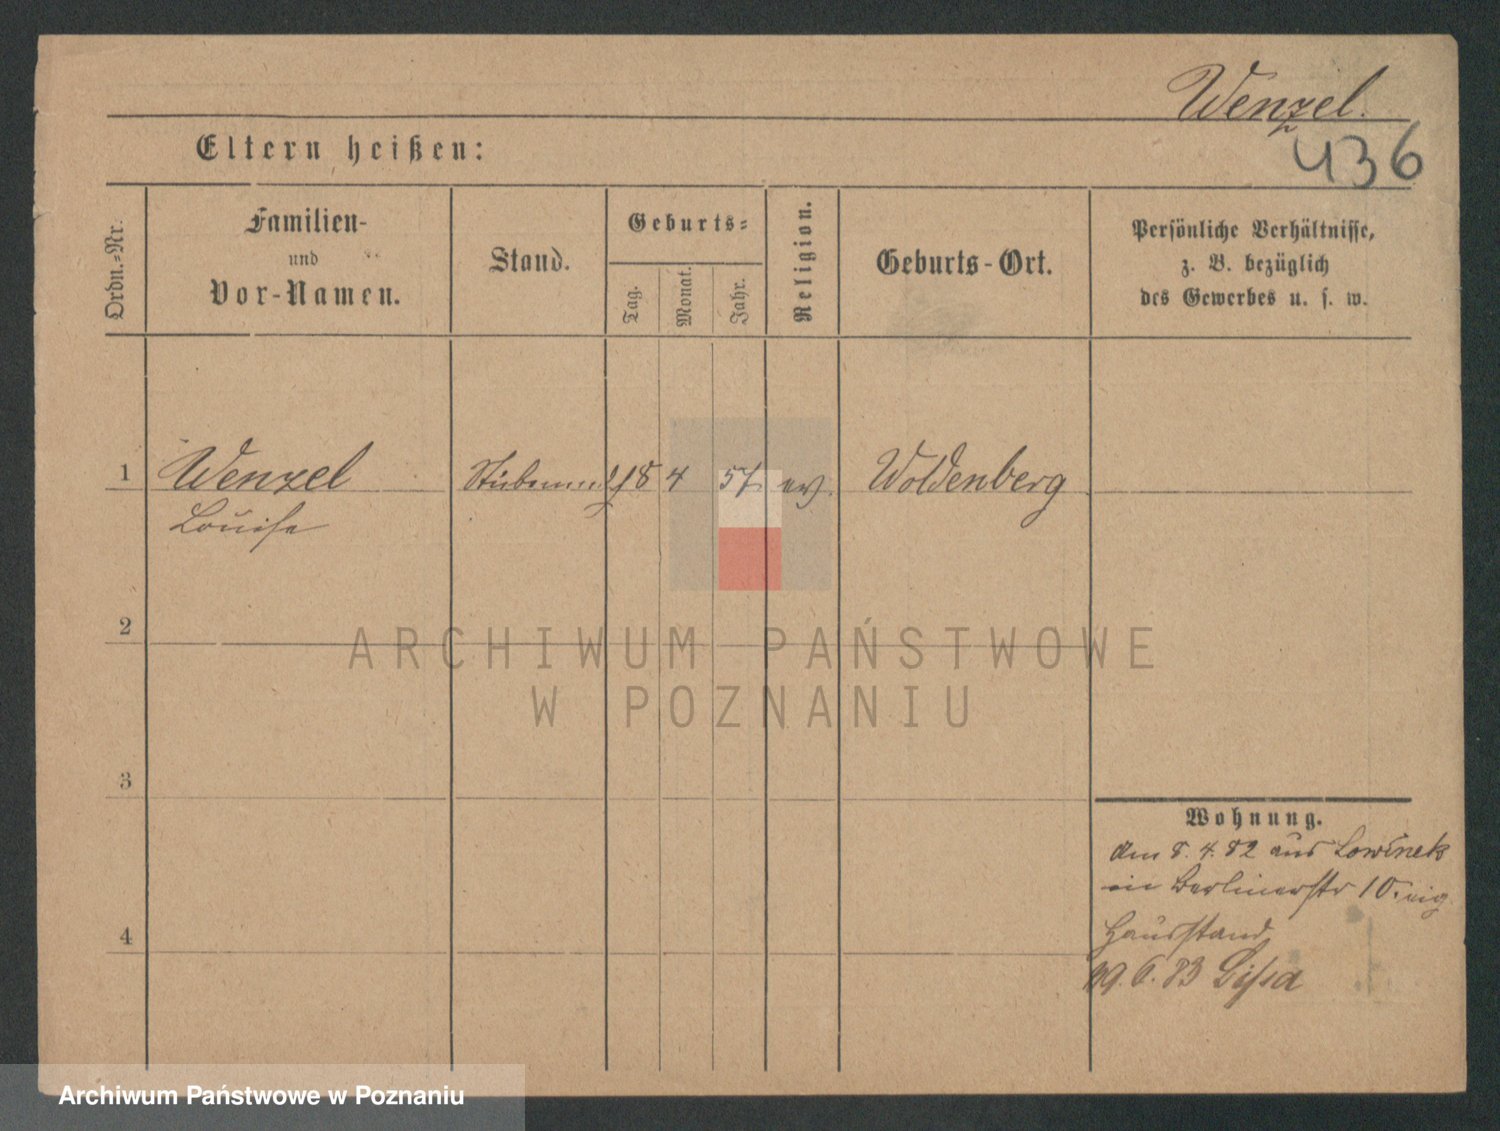 Wenzel.
436
Eltern heißen:
Ordn.-Nr.
Familien-
und
Vor-Namen.
Stand.
Geburts-
Tag.
Monat.
Jahr.
Religion.
Geburts-Ort.
Persönliche Verhältnisse,
z. B. bezüglich
des Gewerbes u. s. w.
1
Wenzel
Louise
18
4
57
ev.
Woldenberg
2
ARCHIWUM PAŃSTWOWE
W POZNANIU
3
Wohnung.
den 8. 4. 82 aus Lowinek
in Berlinerstr 10. eig
Hausstand
4
19. 6. 83 Lissa
Archiwum Państwowe w Poznaniu